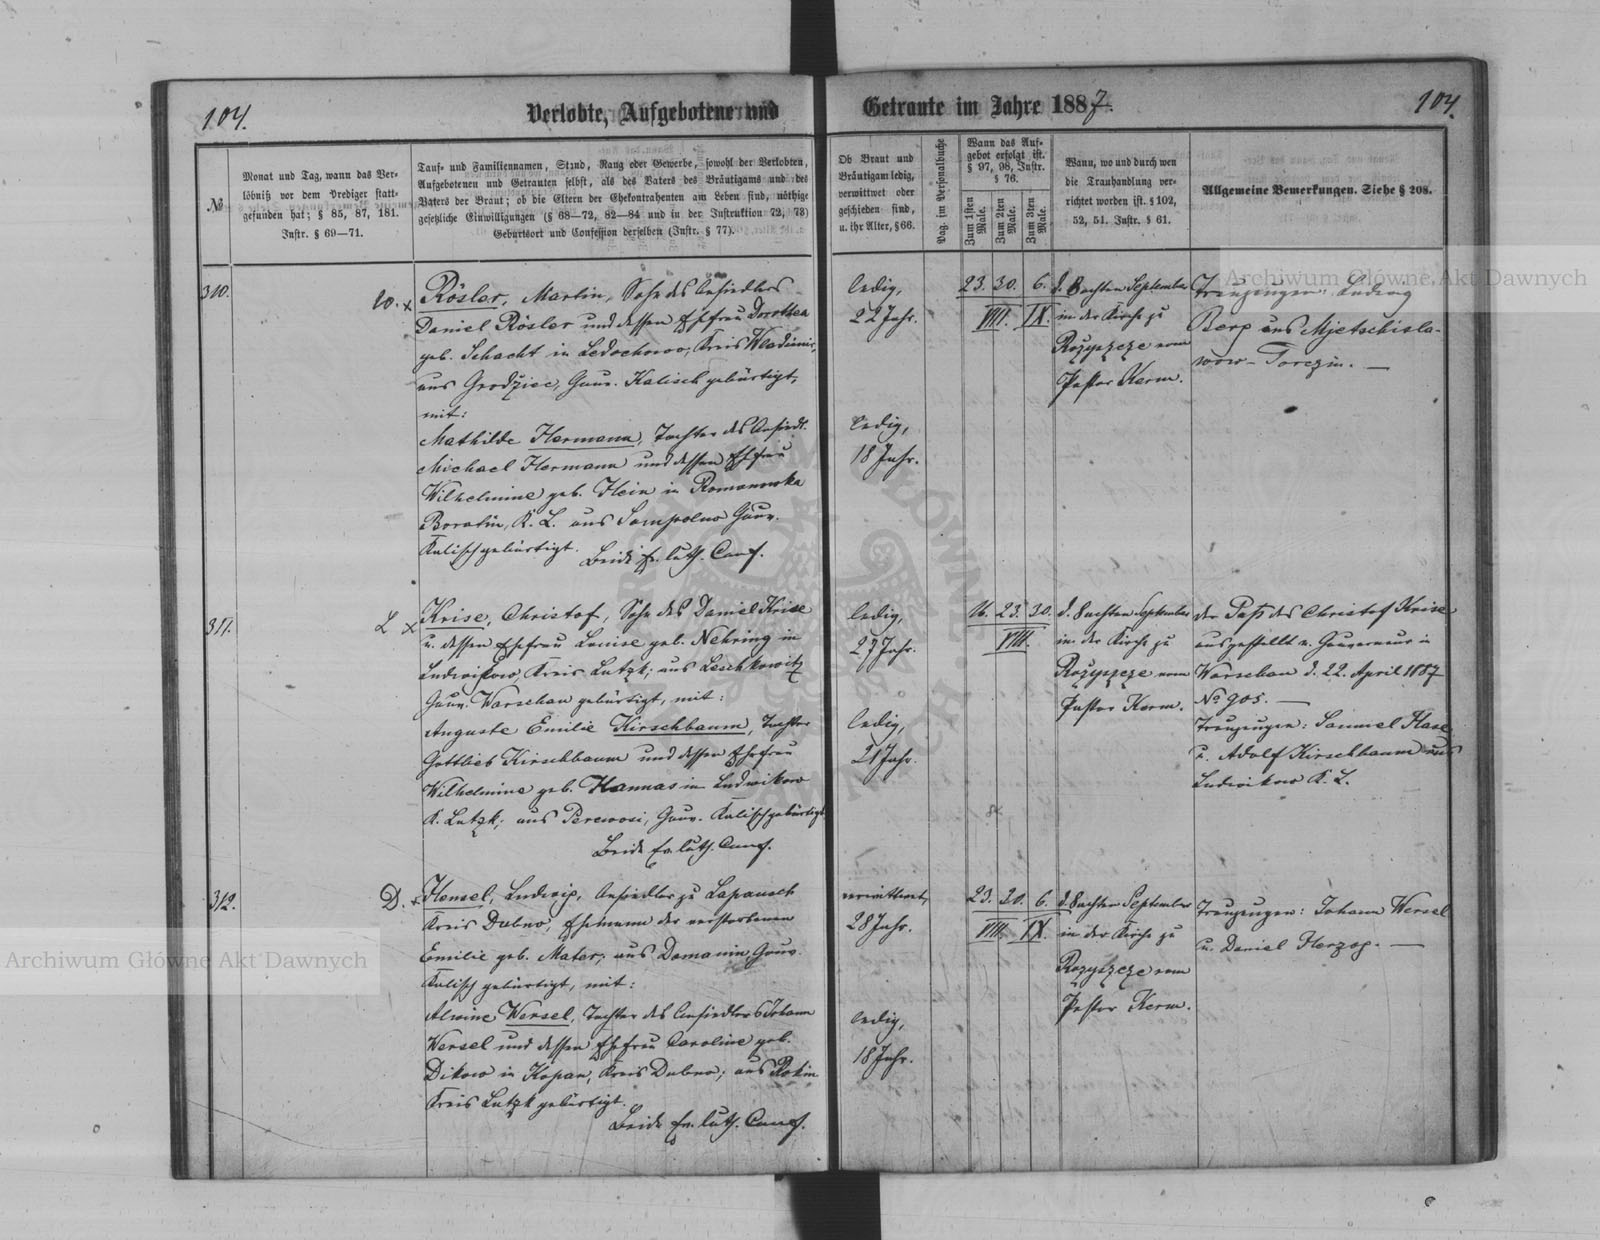 104.
Verlobte, Aufgebotene und
Getraute im Jahre 1887.
104.
№
Monat und Tag, wann das Ver-
löbniß vor dem Prediger statt-
gefunden hat; § 85, 87, 181.
Instr. § 69—71.
Tauf- und Familiennamen, Stand, Rang oder Gewerbe, sowohl der Verlobten,
Aufgebotenen und Getrauten selbst, als des Vaters des Bräutigams und des
Vaters der Braut; ob die Eltern der Ehekontrahenten am Leben sind, nöthige
gesetzliche Einwilligungen (§ 68—72, 82—84 und in der Instruktion 72, 73)
Geburtsort und Confession derselben (Instr. § 77).
Ob Braut und
Bräutigam ledig,
verwittwet oder
geschieden sind,
u. ihr Alter, § 66.
Pag. im Personalbuche
Wann das Auf-
gebot erfolgt ist.
§ 97, 98, Instr.
§ 76.
Zum 1sten Male.
Zum 2ten Male.
Zum 3ten Male.
Wann, wo und durch wen
die Trauhandlung ver-
richtet worden ist. § 102,
52, 51. Instr. § 61.
Allgemeine Bemerkungen. Siehe § 208.
310.
W. x
Rösler, Martin, Sohn des Ansiedlers
Daniel Rösler und dessen Ehefrau Dorothea
geb. Schacht in Ledochowo, Kreis Wladimir,
aus Grodziec, Gouv. Kalisch gebürtigt,
mit:
Mathilde Hermann, Tochter des Ansiedl.
Michael Hermann und dessen Ehefrau
Wilhelmine geb. Hein in Romanowka
Boratin, K. L. aus Sompolno Gouv.
Kalisch gebürtigt.
Beide ev. luth. Conf.
ledig,
22 Jahr.
ledig,
18 Jahr.
23. 30. 6.
VIII. IX.
d. 8 achten September
in der Kirche zu
Rożyszcze vom
Pastor Kerm.
Trauzeugen: Ludwig
Berg aus Mjetschisla-
wow-Torczin. —
311.
L x
Krise, Christof, Sohn des Daniel Krise
u. dessen Ehefrau Louise geb. Nehring in
Ludwikow, Kreis Lutzk; aus Leschkowitz
Gouv. Warschau gebürtigt, mit:
Auguste Emilie Kirschbaum, Tochter
Gottlieb Kirschbaum und dessen Ehefrau
Wilhelmine geb. Hannas in Ludwikow
K. Lutzk; aus Perewosi, Gouv. Kalisch gebürtigt
Beide ev. luth. Conf.
ledig,
27 Jahr.
ledig,
21 Jahr.
16. 23. 30.
VIII.
d. 8 achten September
in der Kirche zu
Rożyszcze vom
Pastor Kerm.
der Paß des Christof Krise
ausgestellt v. Gouverneur in
Warschau d. 22. April 1887
No 905. —
Trauzeugen: Samuel Hase
u. Adolf Kirschbaum aus
Ludwikow K. L.
312.
D. x
Hensel, Ludwig, Ansiedler zu Lapausch
Kreis Dubno, Ehemann der verstorbenen
Emilie geb. Mater; aus Domanin, Gouv.
Kalisch gebürtigt, mit:
Alwine Wersel, Tochter des Ansiedlers Johann
Wersel und dessen Ehefrau Caroline geb.
Dikow in Kopan, Kreis Dubno; aus Rokin
Kreis Lutzk gebürtigt.
Beide ev. luth. Conf.
verwittwet,
28 Jahr.
ledig,
18 Jahr.
23. 30. 6.
VIII. IX.
d. 8 achten September
in der Kirche zu
Rozyszcze vom
Pastor Kerm.
Trauzeugen: Johann Wersel
u. Daniel Herzog. —
Archiwum Główne Akt Dawnych
Archiwum Główne Akt Dawnych